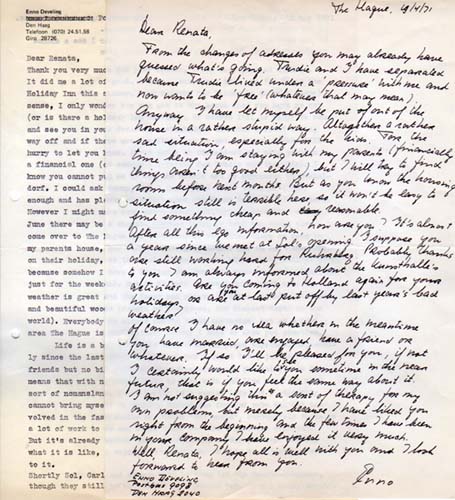 Enno Develing
Den Haag
Telefoon (070) 24.51.58
Giro 28726
Dear Renata,
Thank you very muc
It did me a lot of
Holiday Inn this a
sense, I only wond
(or is there a hol
and see you in you
way off and if the
hurry to let you l
a financial one (
know you cannot pu
dorf. I could ask
enough and has pl
However I might ma
June there may be
come over to The I
my parents house,
on their holiday,
because somehow I
just for the weeke
weather is great
and beautiful wood
world). Everybody
area The Hague is
Life is a b
ly since the last
friends but no bi
means that with n
sort of nomansland
cannot bring myse
volved in the fas
a lot of work to
But it's already
what it is like,
to it.
Shertly Sol, Carl
though they still
The Hague, 4/71
Dear Renata,
From the changes of adresses you may already have
guessed what's going. Trudie and I have separated
because Trudie lived under a 'pressure' with me and
now wants to be 'free' (whatever that may mean).
Anyway I have let myself be put of out of the
house in a rather stupid way. Altogether a rather
sad situation, especially for the kids. For the
time being I am staying with my parents (financially
things aren't too good either), but I will try to find
room before next months. But as you know the housing
situation still is terrible here, so it won't be easy to
find something cheap and reasonable.
After all this ego information, how are you? It's almost
a year since we met at Sol's opening. I suppose you
are still working hard for Ruhrberg. Probably thanks
to you I am always informed about the Kunsthalle's
activities. Are you coming to Holland again for your
holidays, or are at last put off by last year's bad
weather?
Of course I have no idea whether in the meantime
you have married, are engaged, have a friend or
whatever. If so I'll be pleased for you, if not
I certainly would like to see you sometime in the near
future, that is if you feel the same way about it.
I am not suggesting this as a sort of therapy for my
own problems, but merely because I have liked you
right from the beginning and the few times I have been
in your company I have enjoyed it very much.
Well Renata, I hope all is well with you and I look
forward to hear from you.
Enno
Enno Develing
Postbus 9098
Den Haag 2040